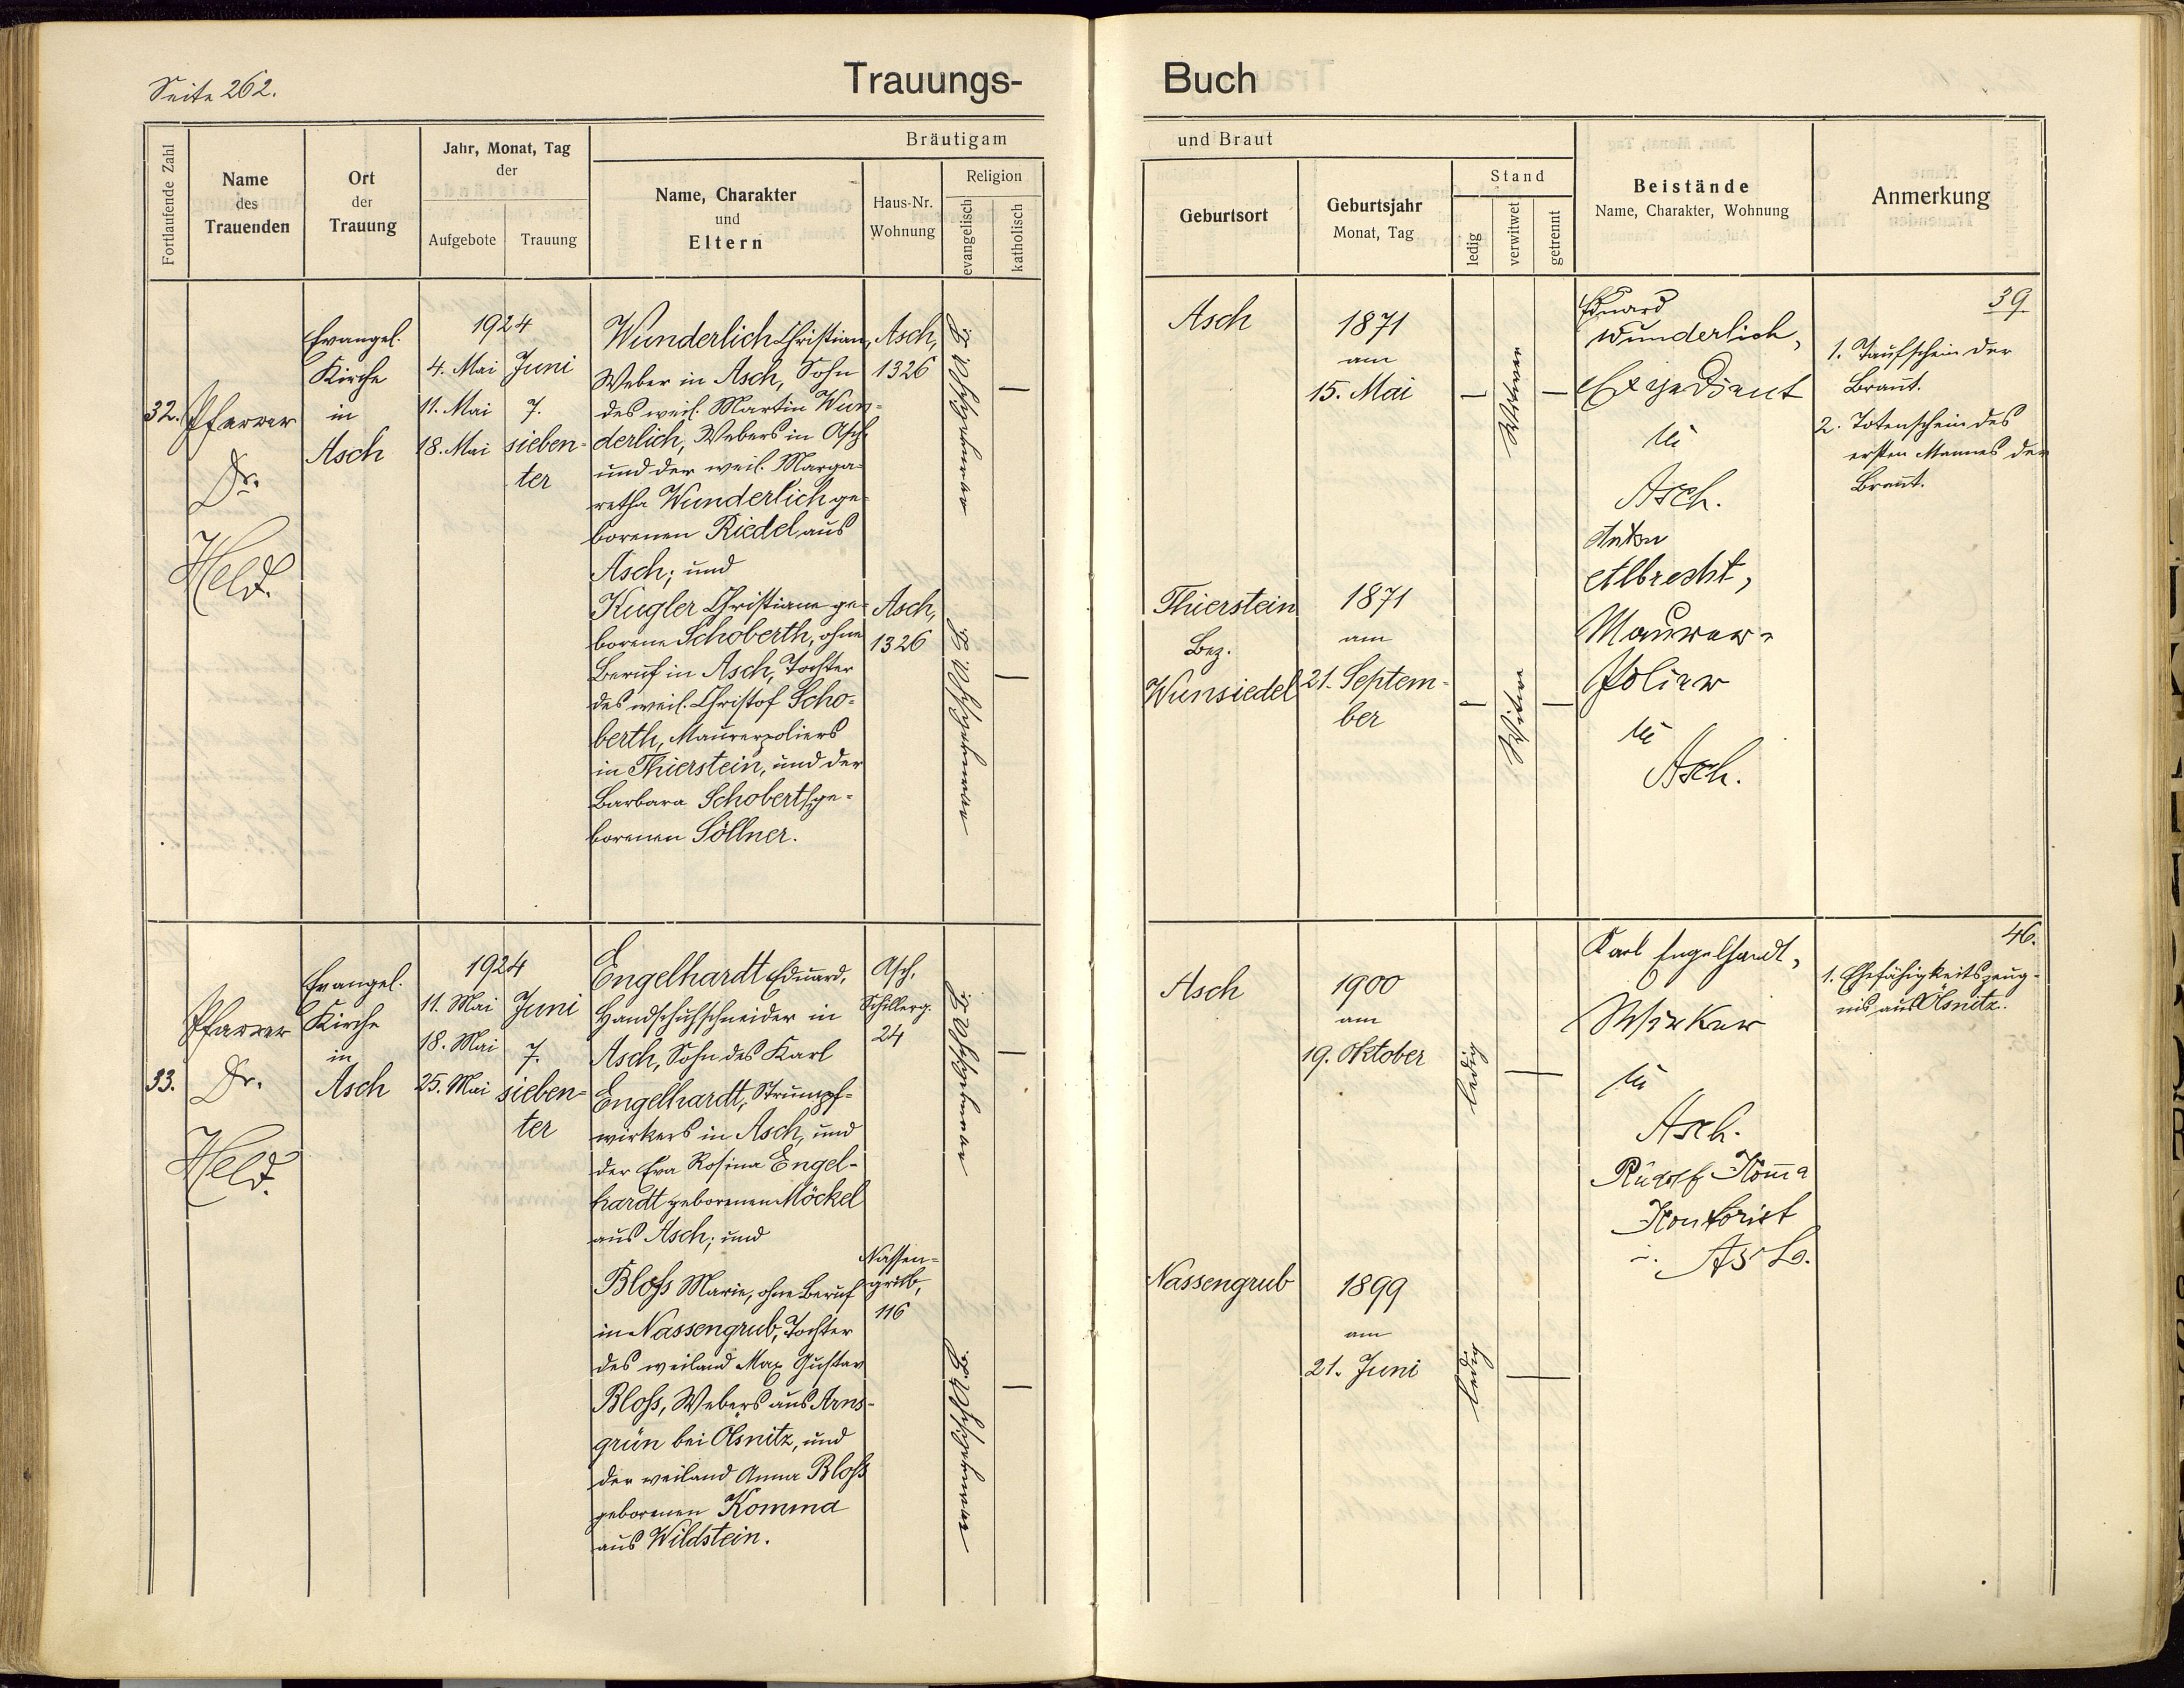 Seite 262.
Trauungs-
Buch
Fortlaufende Zahl
Name
des
Trauenden
Ort
der
Trauung
Jahr, Monat, Tag
der
Aufgebote
Trauung
Bräutigam
Name, Charakter
und
Eltern
Haus-Nr.
Wohnung
Religion
evangelisch
katholisch
und Braut
Geburtsort
Geburtsjahr
Monat, Tag
Stand
ledig
verwitwet
getrennt
Beistände
Name, Charakter, Wohnung
Anmerkung
32.
Pfarrer
Dr.
Held.
Evangel.
Kirche
in
Asch
1924
4. Mai
11. Mai
18. Mai
Juni
7.
sieben-
ter
Wunderlich Christian,
Weber in Asch, Sohn
des weil. Martin Wun-
derlich, Webers in Asch,
und der weil. Marga-
retha Wunderlich ge-
borenen Riedel aus
Asch; und
Kugler Christiane ge-
borene Schoberth, ohne
Beruf in Asch, Tochter
des weil. Christof Scho-
berth, Maurerpoliers
in Thierstein, und der
Barbara Schoberth ge-
borenen Söllner.
Asch,
1326
Asch,
1326
evangelisch A. B.
evangelisch A. B.
Asch
1871
am
15. Mai
Witwer
Thierstein
Bez.
Wunsiedel
1871
am
21. Septem-
ber
Witwe
Eduard
Wunderlich,
Expedient
in
Asch.
Anton
Albrecht,
Maurer-
Polier
in
Asch.
39
1. Taufschein der
Braut.
2. Totenschein des
ersten Mannes der
Braut.
33.
Pfarrer
Dr.
Held.
Evangel.
Kirche
in
Asch
1924
11. Mai
18. Mai
25. Mai
Juni
7.
sieben-
ter
Engelhardt Eduard,
Handschuhschneider in
Asch, Sohn des Karl
Engelhardt, Strumpf-
wirkers in Asch, und
der Eva Rosina Engel-
hardt geborenen Möckel
aus Asch; und
Bloß Marie, ohne Beruf
in Nassengrub, Tochter
des weiland Max Gustav
Bloß, Webers aus Arns-
grün bei Ölsnitz, und
der weiland Anna Bloß
geborenen Komma
aus Wildstein.
Asch,
Schillerg.
24
Nassen-
grub,
116
evangelisch A. B.
evangelisch A. B.
Asch
1900
am
19. Oktober
ledig
Nassengrub
1899
am
21. Juni
ledig
Karl Engelhardt,
Wirker
in
Asch.
Rudolf Komma
Kontorist
i. Asch.
46.
1. Ehefähigkeitszeug-
nis aus Ölsnitz.